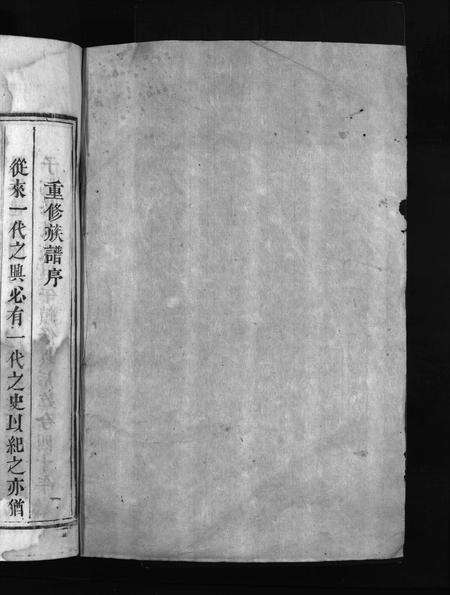 重修族譜序
從來一代之興必有一代之史以紀之亦猶